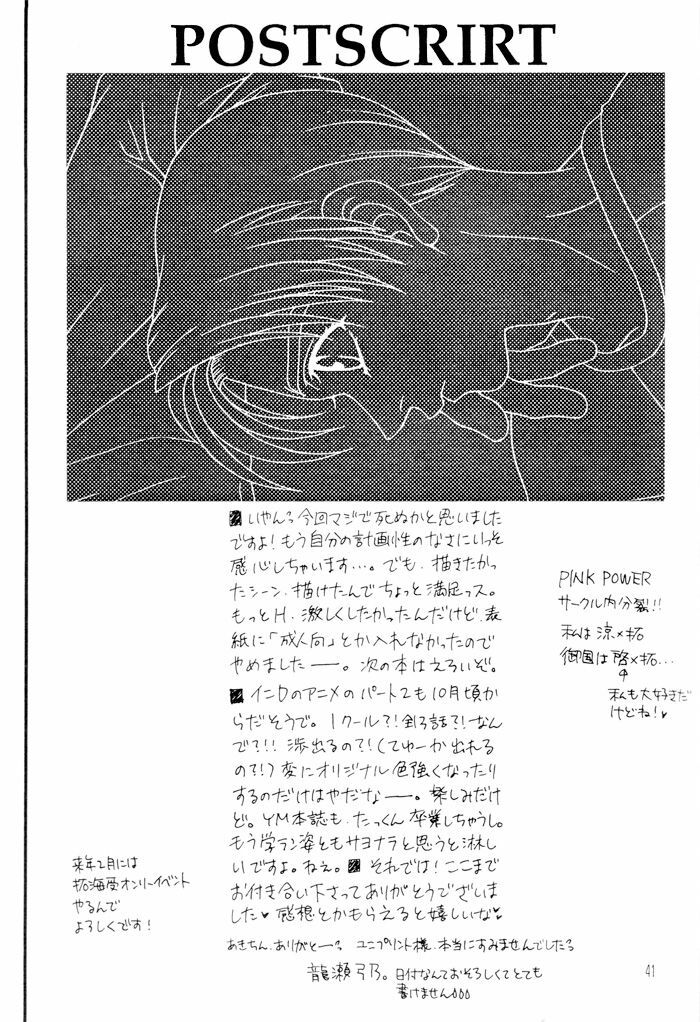 POSTSCRIRT
■いやんっ今回マジで死ぬかと思いました
ですよ！もう自分の計画性のなさにいっそ
感心しちゃいます…。でも、描きたかっ
たシーン、描けたんでちょっと満足っス。
もっとH、激しくしたかったんだけど、表
紙に「成人向」とか入れなかったので
やめました——。次の本はえろいぞ。
■イニDのアニメのパート2も10月頃か
らだそうで。1クール?!全13話?!なん
で?!!渉出るの?!(てゆーか出れる
の?!)変にオリジナル色強くなったり
するのだけはやだな——。楽しみだけ
ど。YM本誌も、たっくん卒業しちゃうし。
もう学ラン姿ともサヨナラと思うと淋し
いですよ。ねぇ。■それでは！ここまで
お付き合い下さってありがとうございま
した♥感想とかもらえると嬉しいな♥
あきちん、ありがと—っ ユニプリント様、本当にすみませんでしたっ
龍瀬弓乃。日付なんておそろしくてとても
書けません
PINK POWER
サークル内分裂!!
私は涼×拓
御国は啓×拓…
私も大好きだ
けどね！♥
来年2月には
拓海受オンリーイベント
やるんで
よろしくです！
41